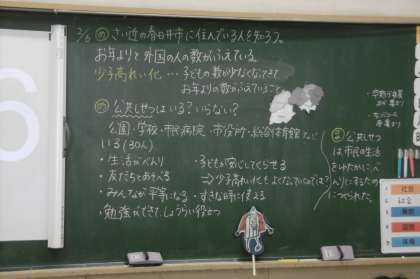 6
2/6 め さい近の春日井市に住んでいる人を知ろう。
お年よりと外国の人の数がふえている。
少子高れい化…子どもの数が少なくなってきて
お年よりの数がふえていること
め 公共しせつはいる?いらない?
公園・学校・市民病院・市役所・総合体育館など
いる(30人)
・生活がべんり
・友だちとあそべる
・みんなが平等になる
・勉強ができてしょうらい役立つ
・子どもが安心してくらせる
⇒少子高れい化もよくなっていくのでは?
・すきな時に使える
ま 公共しせつ
は市民の生活
をゆたかに、べ
んりにするため
につくられた。
社会